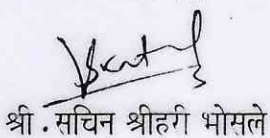 श्री . सचिन श्रीहरी भोसले